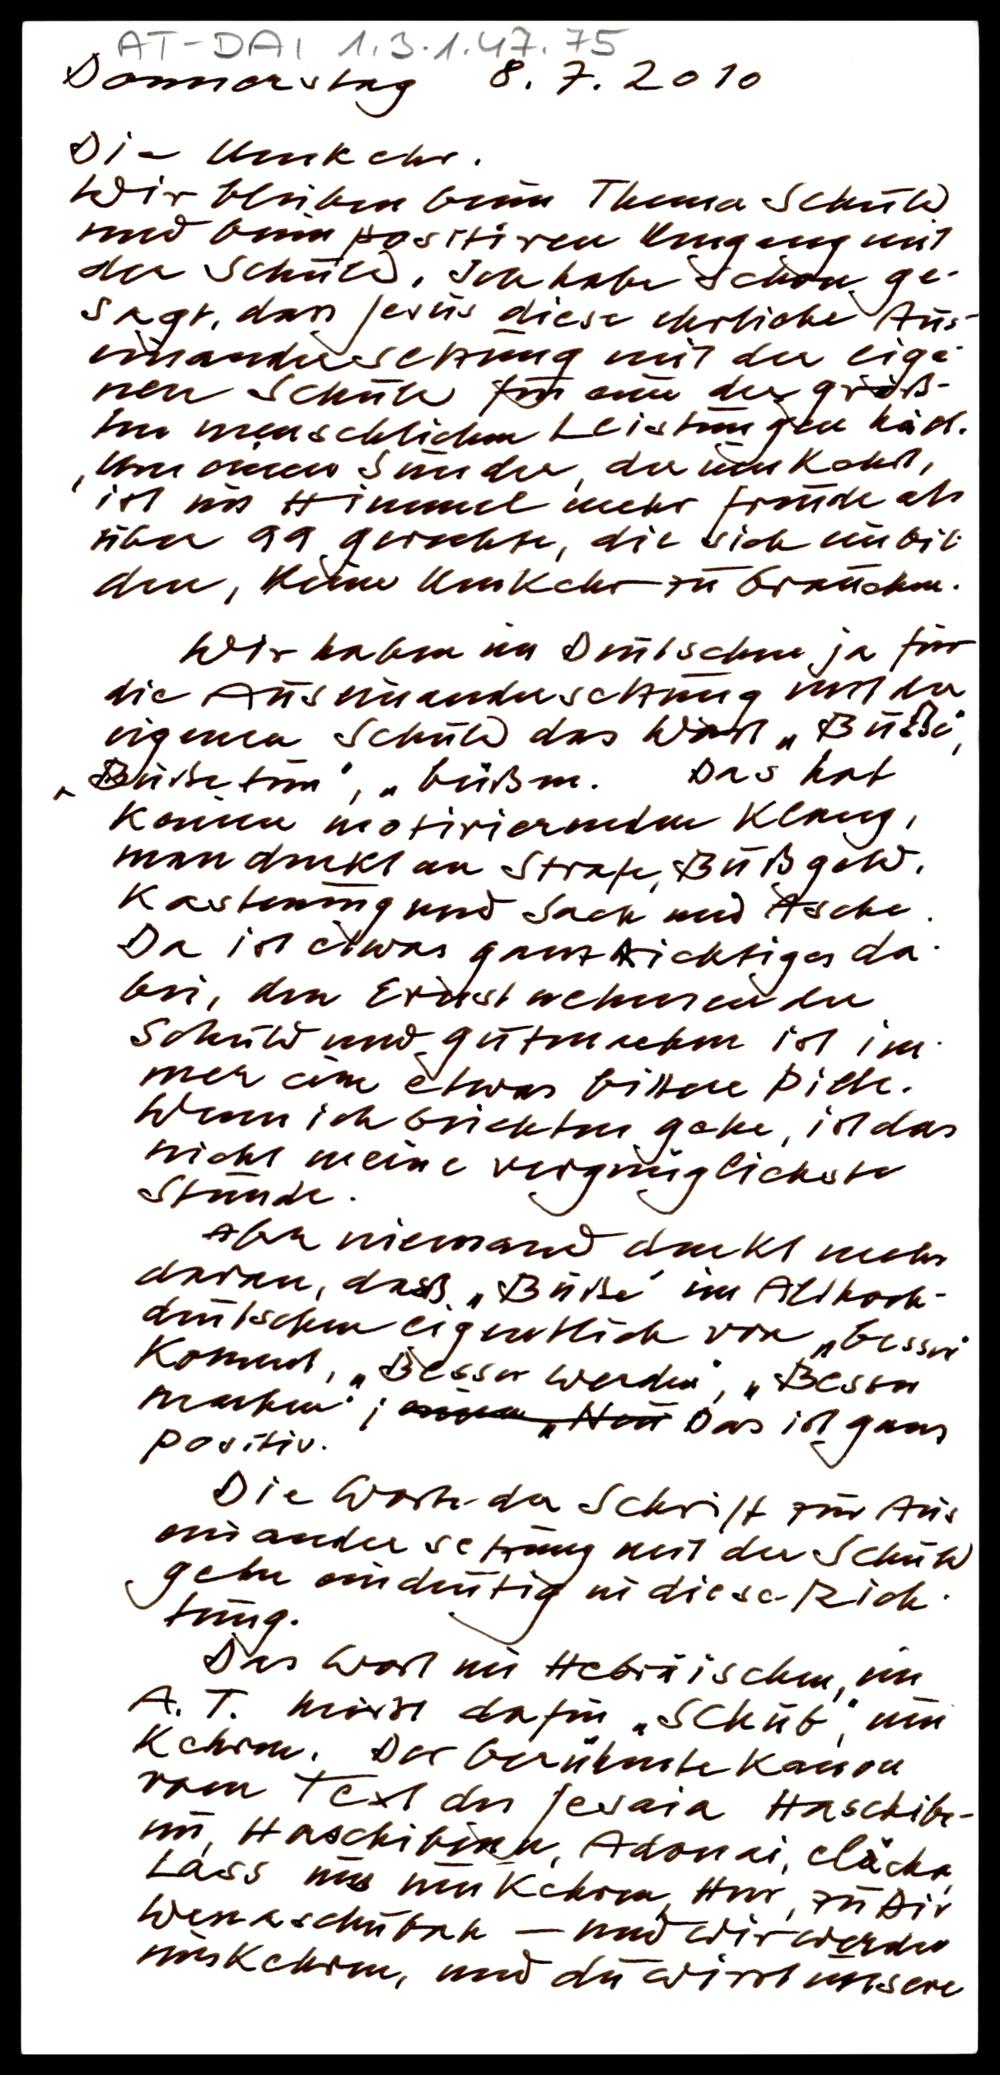 AT-DAI 1.3.1.47.75
Donnerstag 8.7.2010
Die Umkehr.
Wir bleiben beim Thema Schuld
und beim positiven Umgang mit
der Schuld. Ich habe schon ge-
sagt, dass Jesus diese ehrliche Aus-
einandersetzung mit der eige-
nen Schuld für eine der größ-
ten menschlichen Leistungen hält.
„Um einen Sünder, der umkehrt,
ist im Himmel mehr Freude als
über 99 gerechte, die sich einbil-
den, keine Umkehr zu brauchen.
Wir haben im Deutschen ja für
die Auseinandersetzung mit der
eigenen Schuld das Wort „Buße“,
„Buße tun“, „büßen. Das hat
keinen motivierenden Klang,
man denkt an Strafe, Bußgeld,
Kasteiung und Sack und Asche.
Da ist etwas ganz Richtiges da-
bei, denn Ernstnehmen der
Schuld und gutmachen ist im-
mer eine etwas bittere Pille.
Wenn ich beichten gehe, ist das
nicht meine vergnüglichste
Stunde.
Aber niemand denkt mehr
daran, dass „Buße“ im Althoch-
deutschen eigentlich von „besser“
kommt, „Besser werden“, „Besser
machen“; Das ist ganz
positiv.
Die Worte der Schrift zur Aus
einandersetzung mit der Schuld
gehn eindeutig in diese Rich-
tung.
Das Wort im Hebräischen, im
A.T. heißt dafür „Schub“, um
kehren. Der berühmte Kanon
vom Text des Jesaia Haschibe-
nu, Haschibenu, Adonai, elächa,
Lass uns umkehren, Herr, zu Dir
Wenaschubah – und wir werden
umkehren, und du wirst unsere